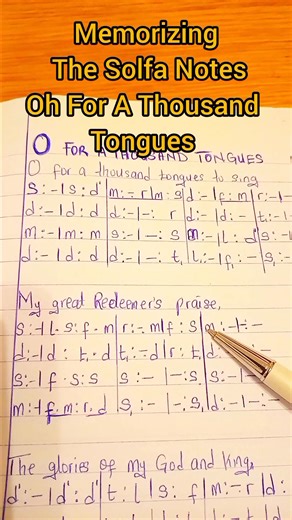 Memorizing
The Solfa Notes
Oh For A Thousand
Tongues
O FOR A THOUSAND TONGUES
O for a thousand tongues to sing
s:-|s:d'|m:-r|m:s|d:-|f:m|r:-|-
d:-|d:d|d:-|-:r|d:-|d:-|t₁:-|-
m:-|m:m|s:-|-:s|m:-|l:d'|s:-|
d:-|d:d|d:-|-:t₁|l₁:-|f₁:-|s₁:-|
My great Redeemer's praise,
s:-|l.s:f.m|r:-m|f:s|m:-|-:-
d:-|d:t₁.d|t₁:-d|r:t₁|d:-
s:-|f.s:s|s:-|-:s|s:-|-
m:-|f.m:r.d|s₁:-|-:s₁|d:-|-:-
The glories of my God and King,
d':-|d':d'|t:l|s:f|m:-r|d: